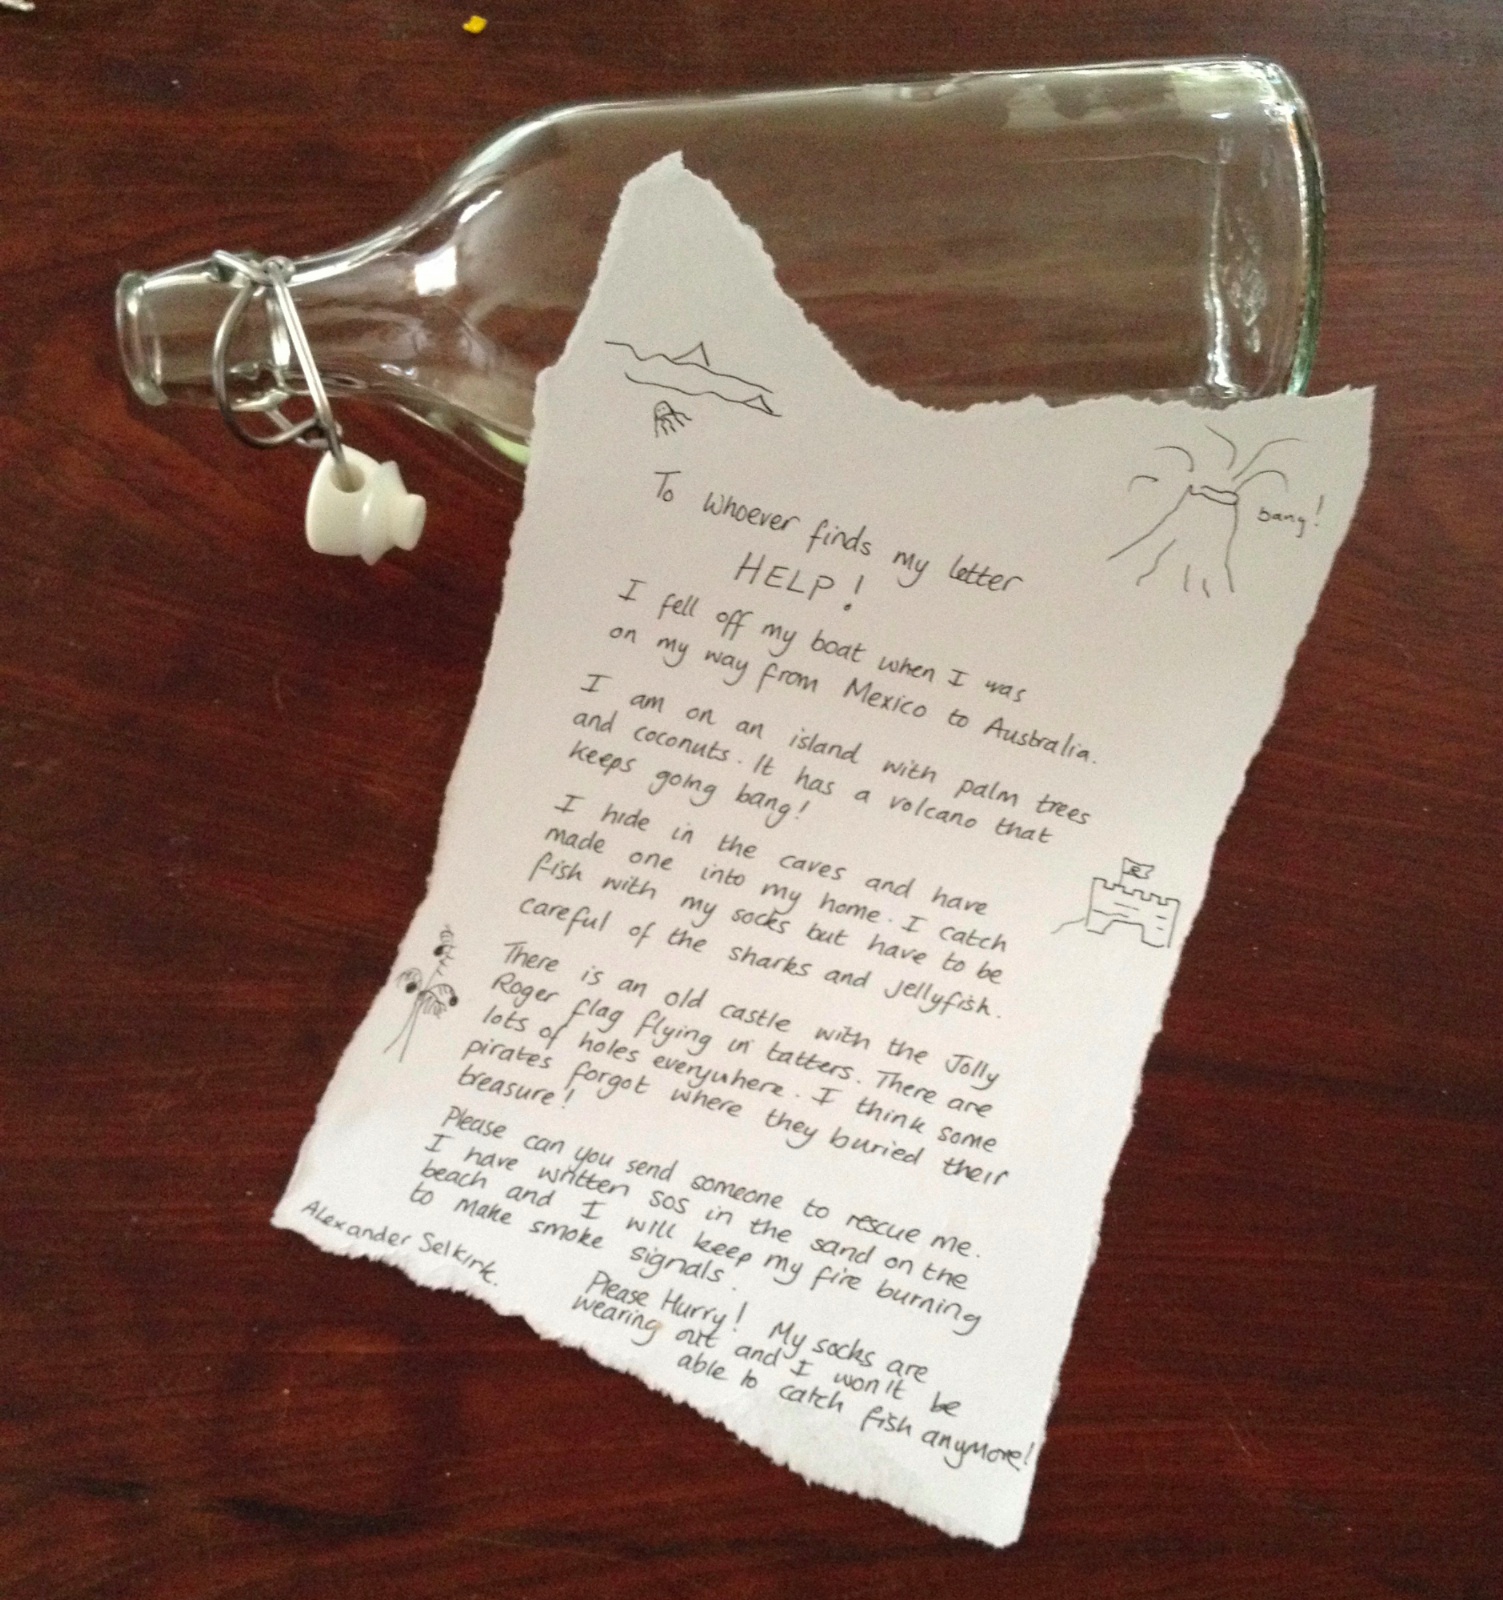 bang!
To whoever finds my letter
HELP!
I fell off my boat when I was
on my way from Mexico to Australia.
I am on an island with palm trees
and coconuts. It has a volcano that
keeps going bang!
I hide in the caves and have
made one into my home. I catch
fish with my socks but have to be
careful of the sharks and jellyfish.
There is an old castle with the Jolly
Roger flag flying in tatters. There are
lots of holes everywhere. I think some
pirates forgot where they buried their
treasure!
Please can you send someone to rescue me.
I have written SOS in the sand on the
beach and I will keep my fire burning
to make smoke signals.
Alexander Selkirk.
Please Hurry! My socks are
wearing out and I won't be
able to catch fish anymore!